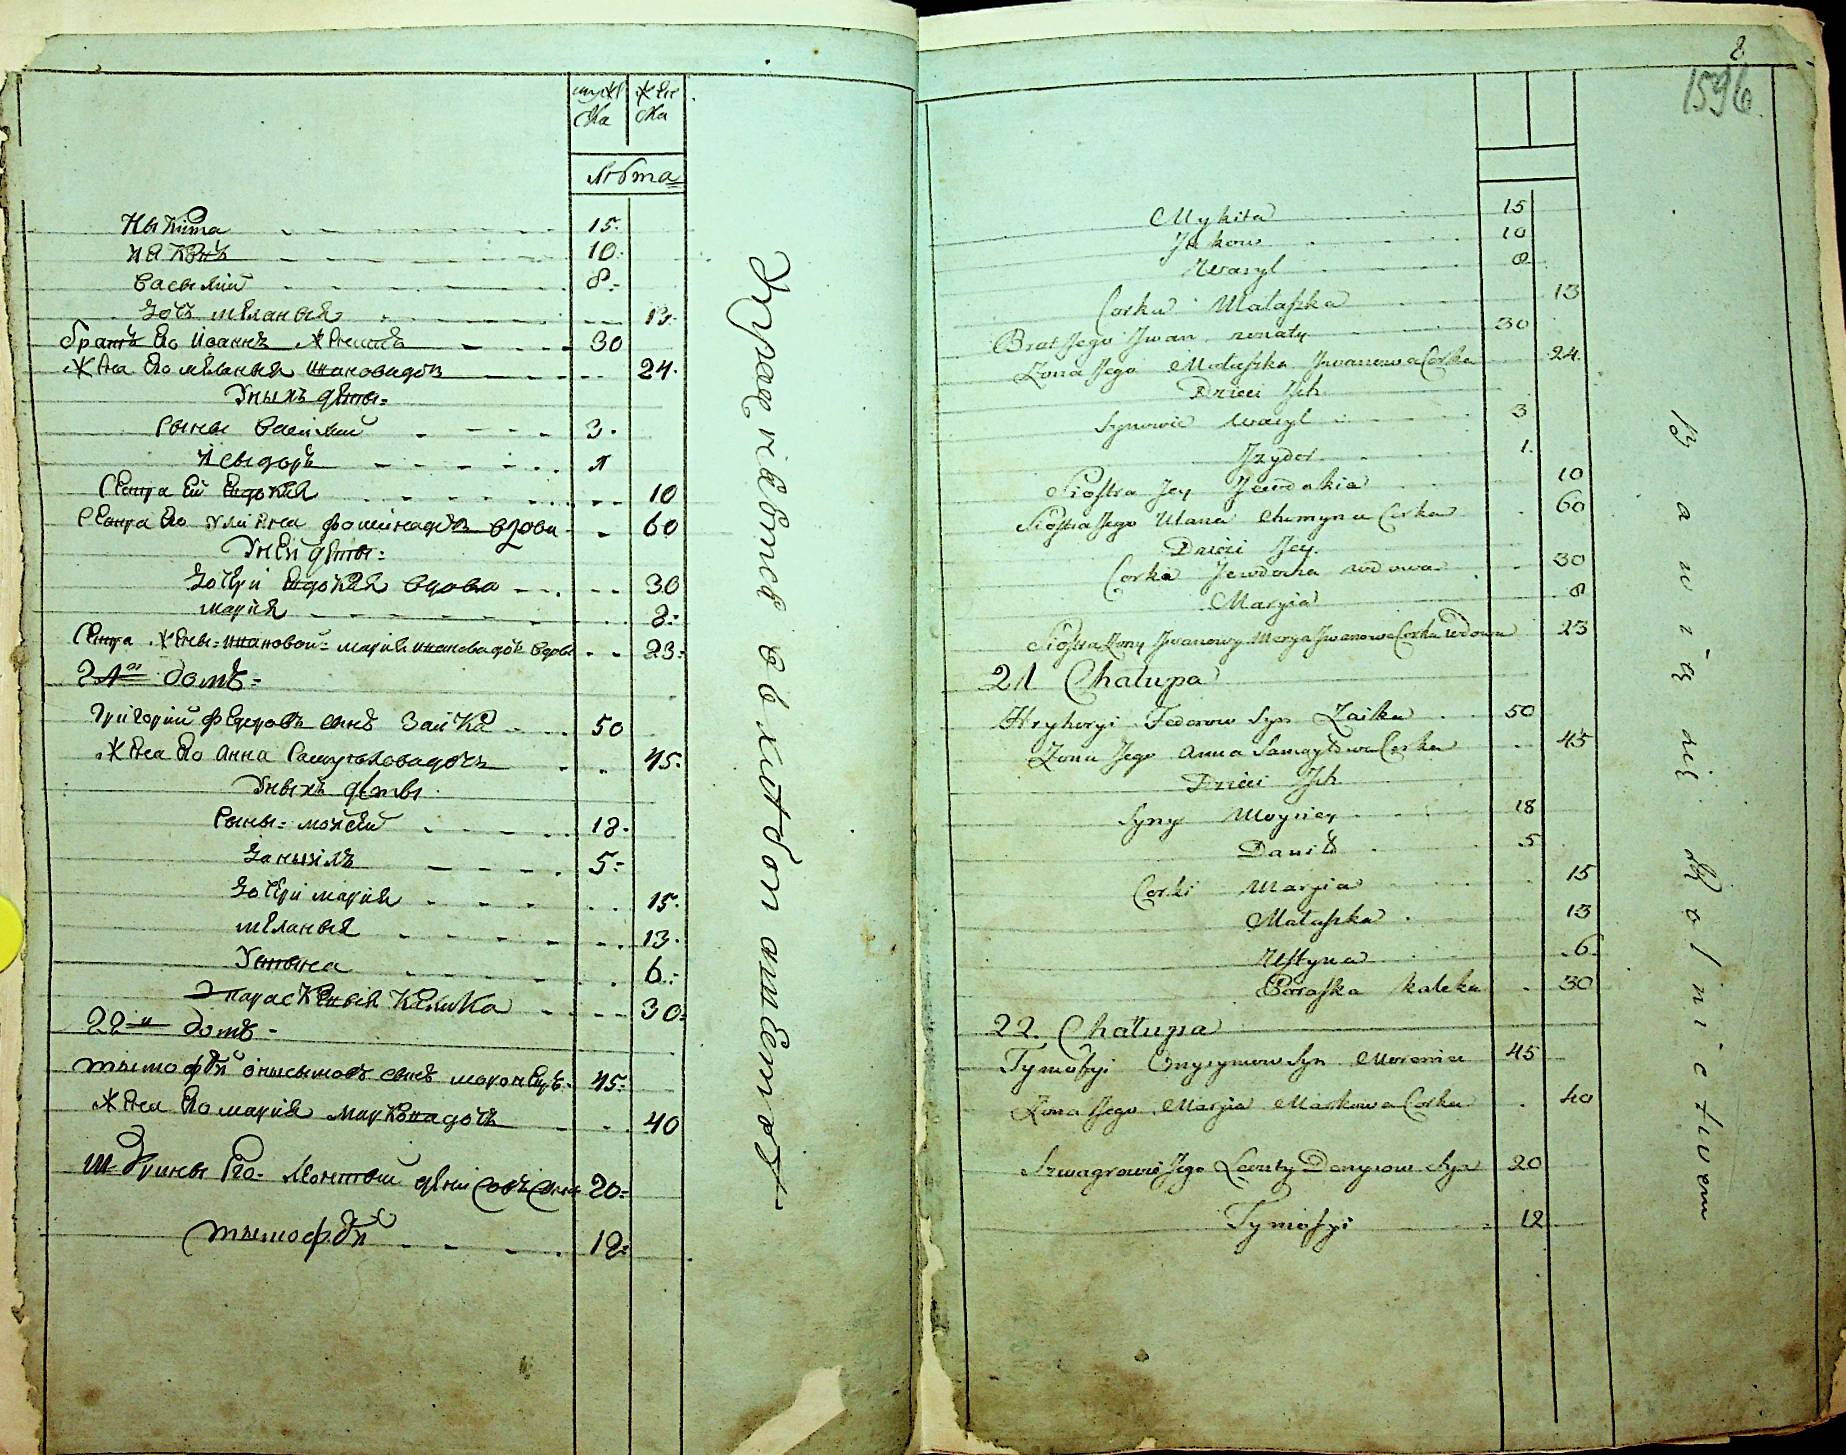 мужеска женска
лѣта
Ныкита 15
Яковъ 10
Василий 8
Дочъ меланья 13
братъ его иванъ женатъ 30
Жена его меланья ивановадочь 24
Уныхъ дѣты
Сыны василий 3
Исыдоръ 1
Сестра ей евдокия 10
Сестра его улияна фоминадочь вдова 60
Уней дѣты
Дочери евдокия вдова 30
мария 8
Сестра жены ивановой мария ивановадочь вдова 23
21й домъ
Григорий федоровъ синъ Заика 50
Жена его анна Самуиловадочь 45
Уныхъ дѣты
Сыны мойсей 18
Даныилъ 5
Дочери мария 15
меланья 13
Устына 6
параскевия калика 30
22й домъ
тымофѣй онысымовъ синъ 45
Жена его мария марковадочь 40
Швагрины его Леонтий денисовъ синъ 20
тымофѣй 12
8
1596
Mykita 15
Jakow 10
Wasyl 8
Corka Małaszka 13
Brat Jego Jwan zonaty 30
Zona Jego Małaszka Jwanowa Corka 24
Dzieci Jch
Synowie Wasyl 3
Jzydor 1
Siostra Jey Jewdokia 10
Siostra Jego Ulana Chomyna Corka 60
Dzieci Jey
Corka Jewdocha wdowa 30
Maryia 8
Siostra Zony Jwanowy Marya Jwanowa Corka Wdowa 23
21 Chałupa
Hryhoryi Fedorow Syn Zaika 50
Zona Jego Anna Samoyłowa Corka 45
Dzieci Jch
Syny Moyziey 18
Daniło 5
Corki Maryia 15
Małaszka 13
Ustyna 6
Paraszka kaleka 30
22 Chałupa
Tymofiyi Onysymow Syn 45
Zona Jego Maryia Markowa Corka 40
Szwagrowie Jego Lewnty Denysow Syn 20
Tymofiyi 12